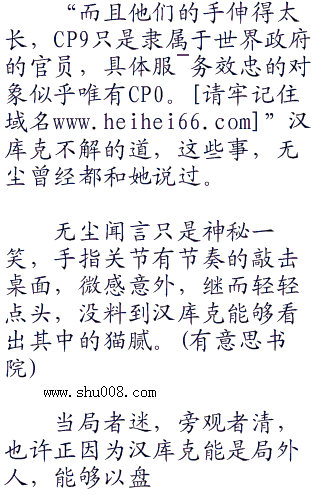 “而且他们的手伸得太
长，CP9只是隶属于世界政府
的官员，具体服¯务效忠的对
象似乎唯有CP0。[请牢记住
域名www.heihei66.com]”汉
库克不解的道，这些事，无
尘曾经都和她说过。
无尘闻言只是神秘一
笑，手指关节有节奏的敲击
桌面，微感意外，继而轻轻
点头，没料到汉库克能够看
出其中的猫腻。(有意思书
院)
www.shu008.com
当局者迷，旁观者清，
也许正因为汉库克能是局外
人，能够以盘